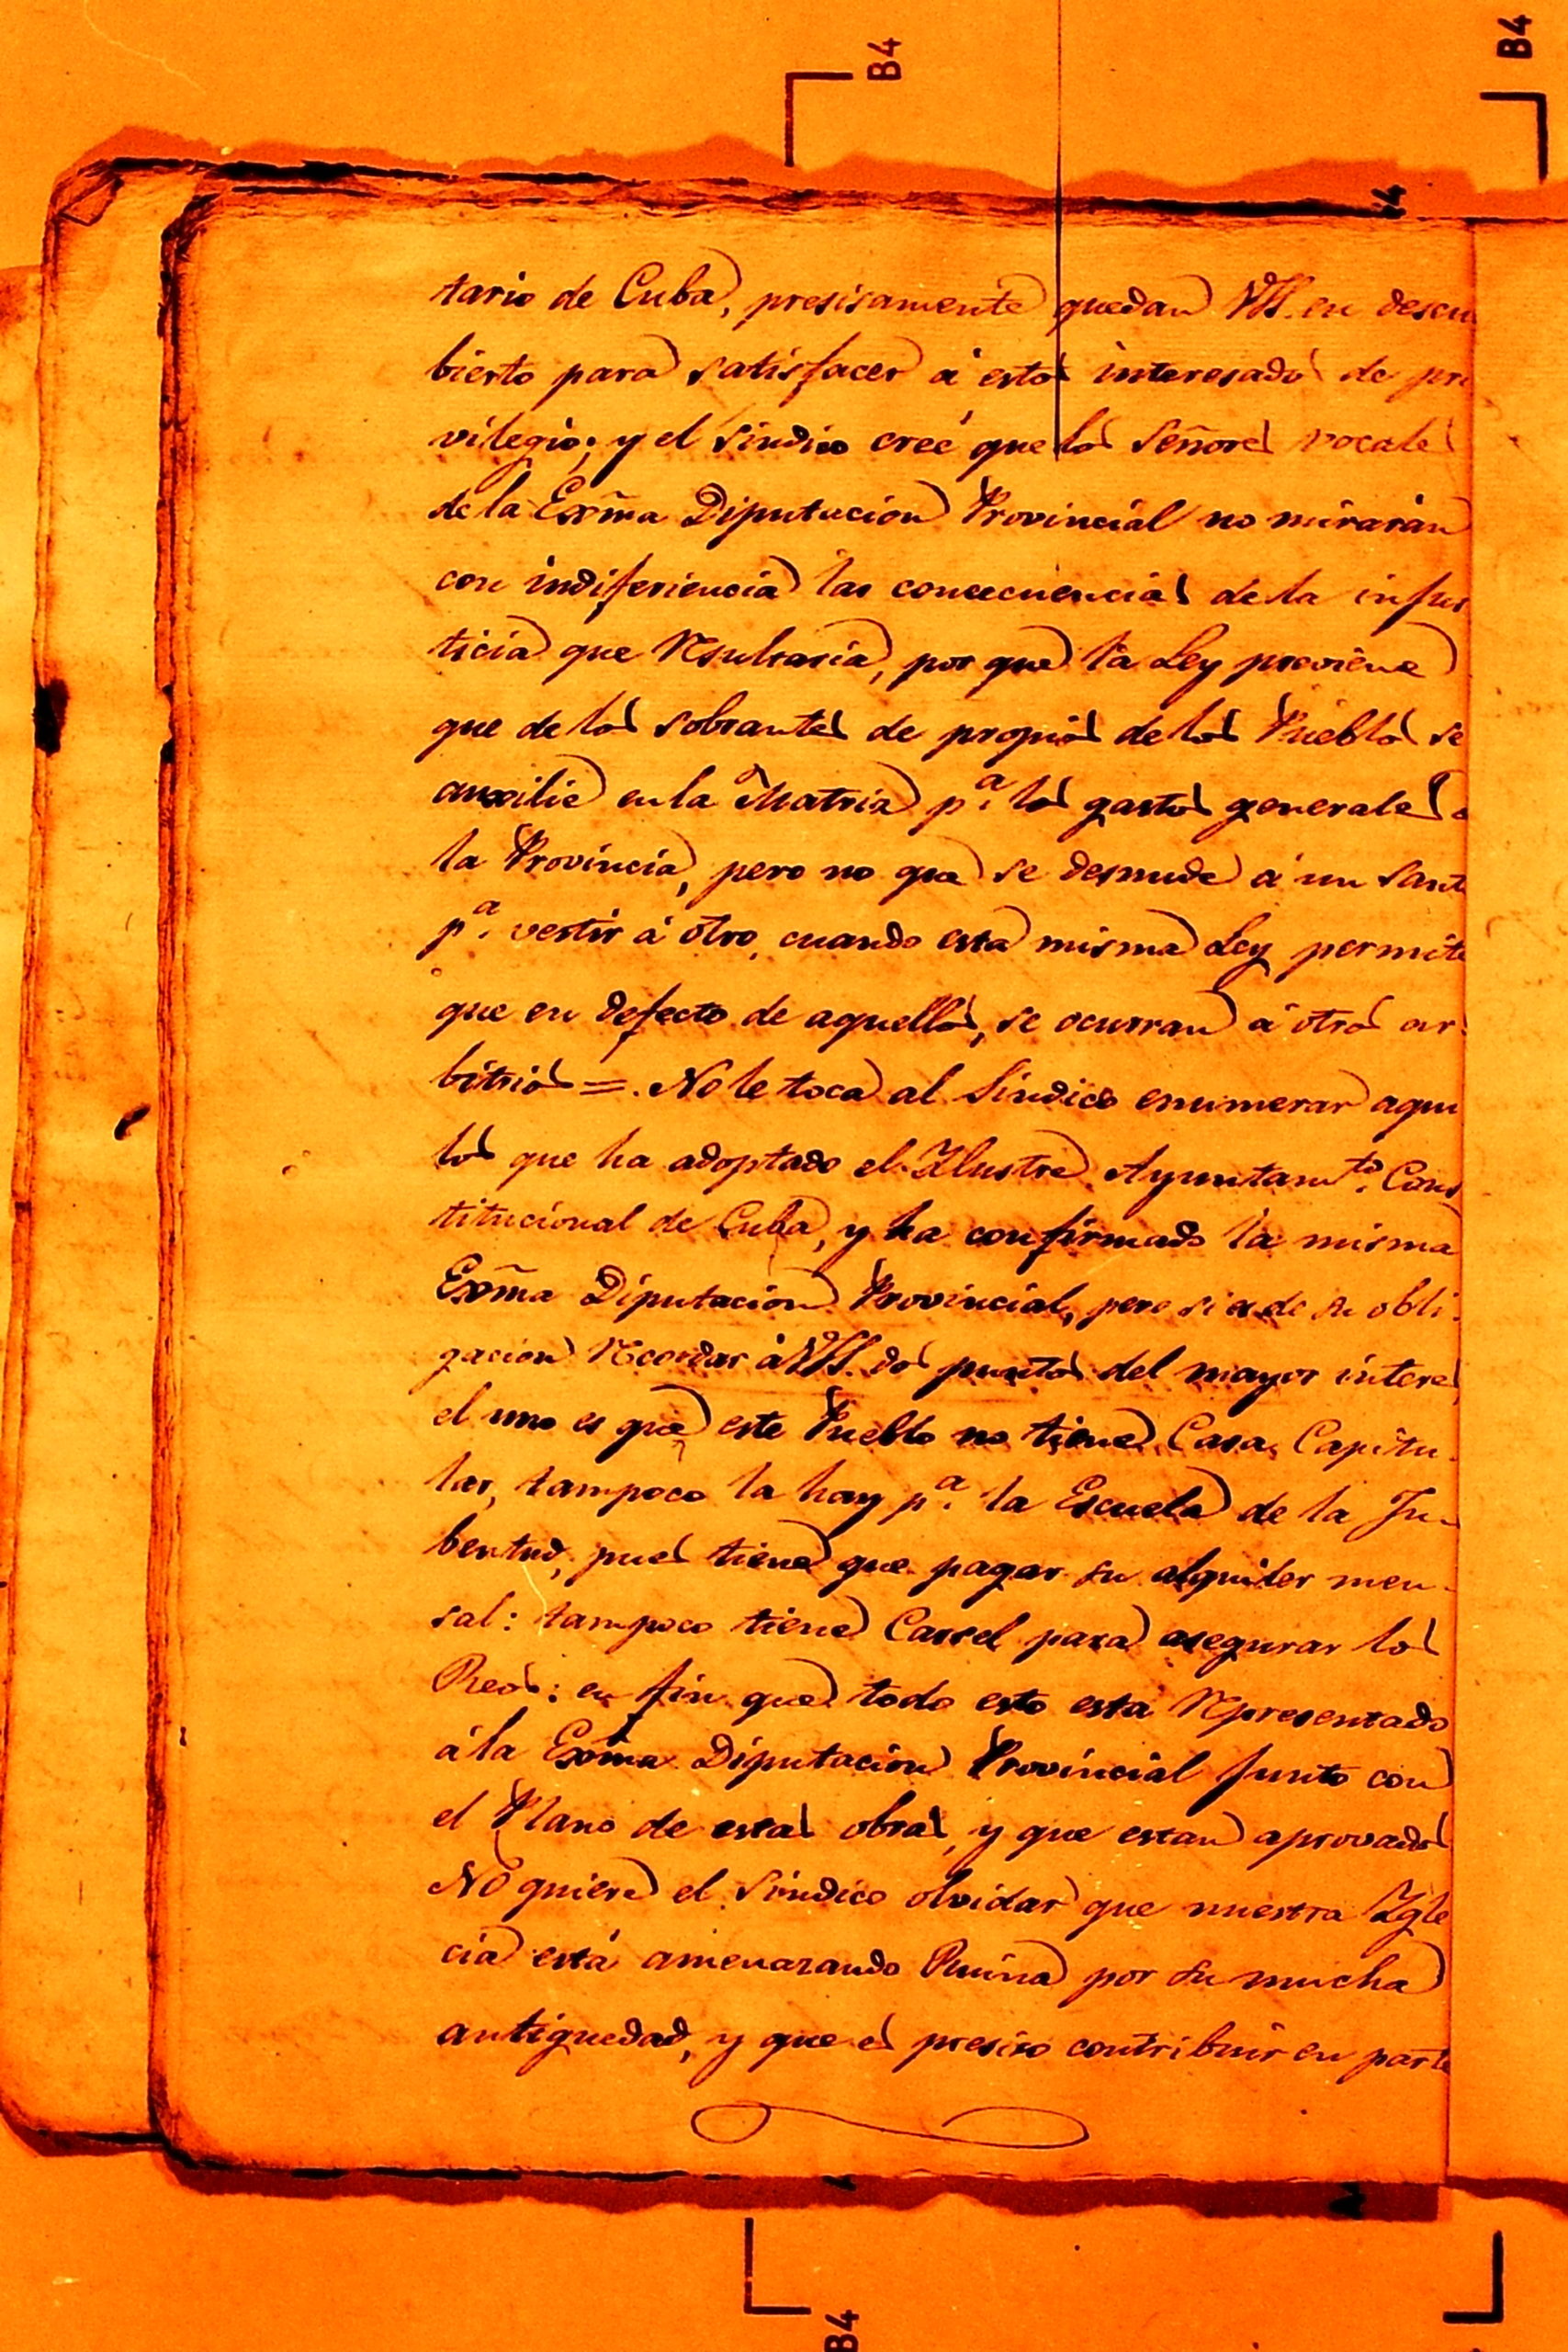 B4
B4
14
tario de Cuba, presisamente quedan VSS. en descu
bierto para satisfacer á estos interesados de pri
vilegio; y el Sindico creé que los Señores vocales
de la Exm̃a Diputacion Provincial no mirarán
con indiferiencia las concecuencias de la injus
ticia que resultaria, por que la Ley previene
que de los sobrantes de propios de los Pueblos se
auxilie en la Matriz pª. los gastos generales
la Provincia, pero no que se desnude á un Sant
pª. vestir á otro, cuando esta misma Ley permite
que en defecto de aquellos, se ocurran á otros ar-
bitrios =. No le toca al Sindico enumerar aqui
los que ha adoptado el Ilustre Ayuntamto. Cons
titucional de Cuba, y ha confirmado la misma
Exm̃a Diputacion Provincial, pero si es de su obli-
gacion recordar á VSS. dos puntos del mayor interes
el uno es que este Pueblo no tiene Casa Capitu-
lar, tampoco la hay pª. la Escuela de la Ju-
bentud, pues tiene que pagar su alquiler men-
sal: tampoco tiene Carsel para asegurar los
Reos: en fin que todo esto esta representado
á la Exm̃a Diputacion Provincial junto con
el Plano de estas obras, y que estan aprovados
No quiere el Sindico olvidar que nuestra Igle
cia está amenazando Ruina por su mucha
antiguedad, y que es presiso contribuir en parte
B4